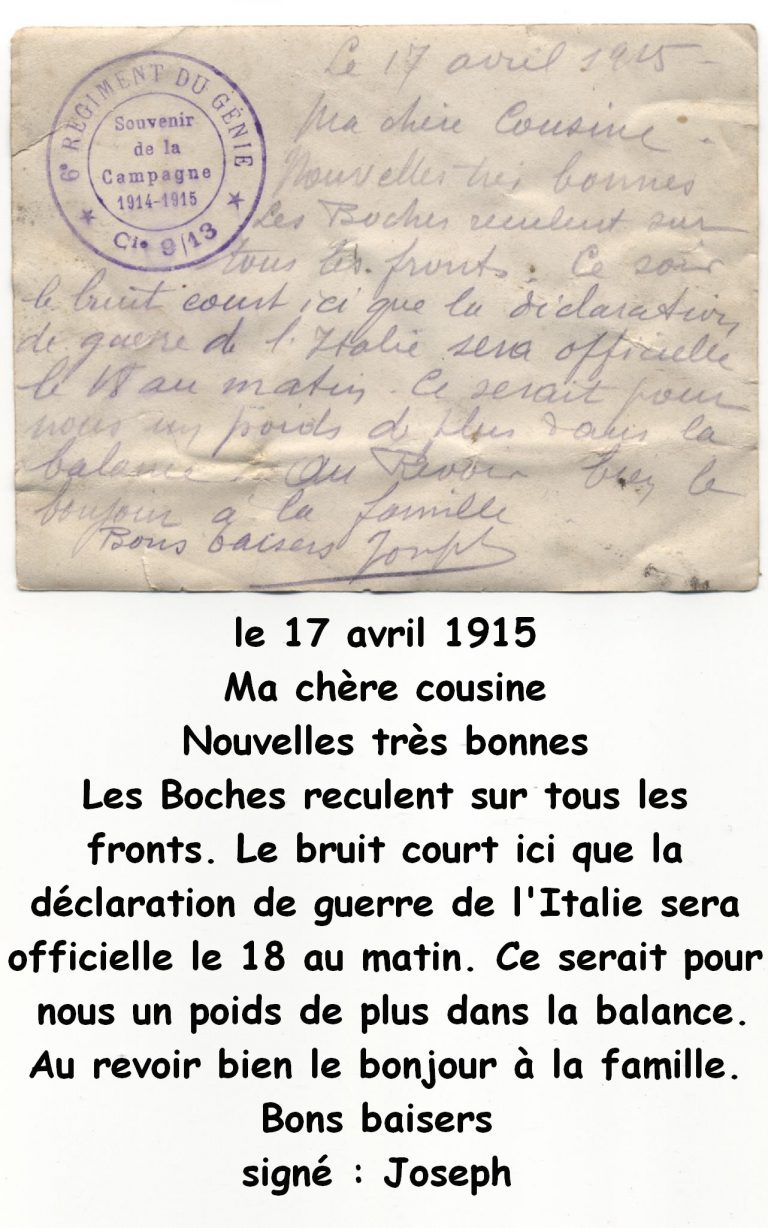 6e RÉGIMENT DU GÉNIE
Souvenir
de la
Campagne
1914-1915
★ Cie 9/13 ★
Le 17 avril 1915 -
Ma chère Cousine.
Nouvelles très bonnes
Les Boches reculent sur
tous les fronts. Ce soir
le bruit court ici que la déclaration
de guerre de l'Italie sera officielle
le 18 au matin. Ce serait pour
nous un poids de plus dans la
balance. Au Revoir bien le
bonjour à la famille.
Bons baisers Joseph
le 17 avril 1915
Ma chère cousine
Nouvelles très bonnes
Les Boches reculent sur tous les
fronts. Le bruit court ici que la
déclaration de guerre de l'Italie sera
officielle le 18 au matin. Ce serait pour
nous un poids de plus dans la balance.
Au revoir bien le bonjour à la famille.
Bons baisers
signé : Joseph